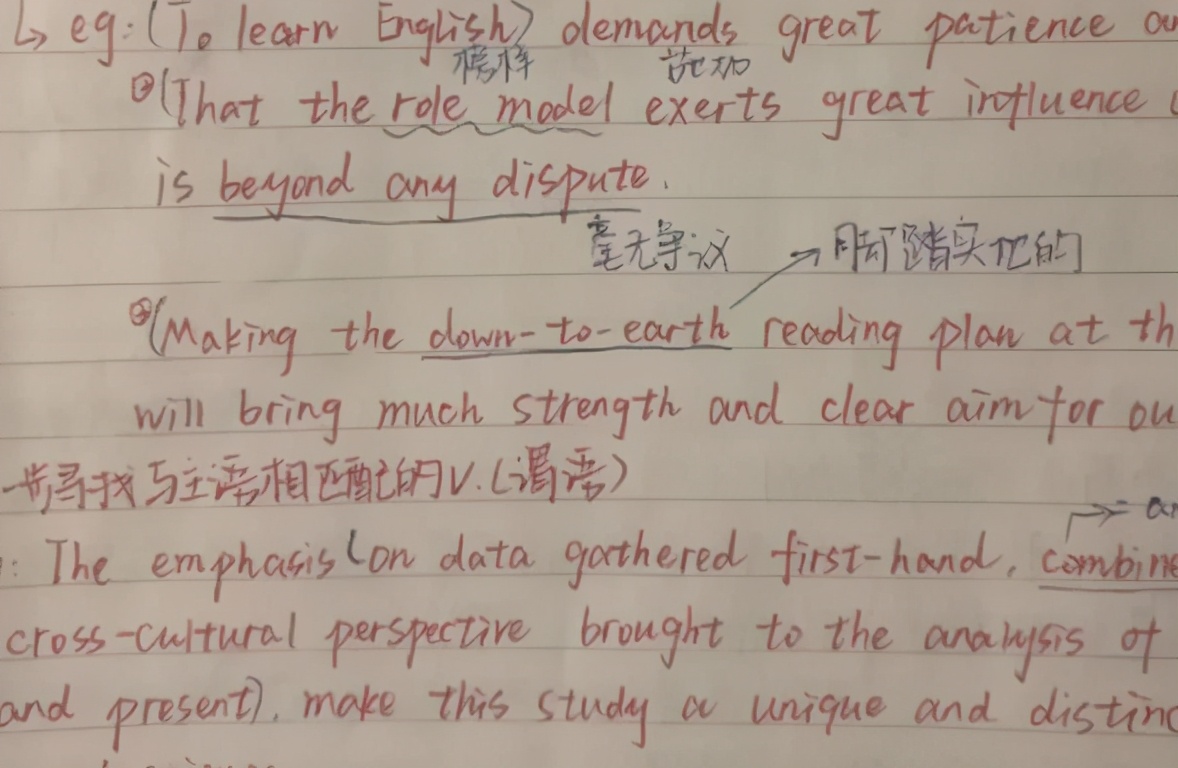 ↳ eg: (To learn English) demands great patience
榜样 施加
② (That the role model exerts great influence
is beyond any dispute.
毫无争议 → 脚踏实地的
③ (Making the down-to-earth reading plan at
will bring much strength and clear aim for
步寻找与主语相匹配的V.(谓语)
: The emphasis (on data gathered first-hand, combine
cross-cultural perspective brought to the analysis of
and present), make this study a unique and distinc